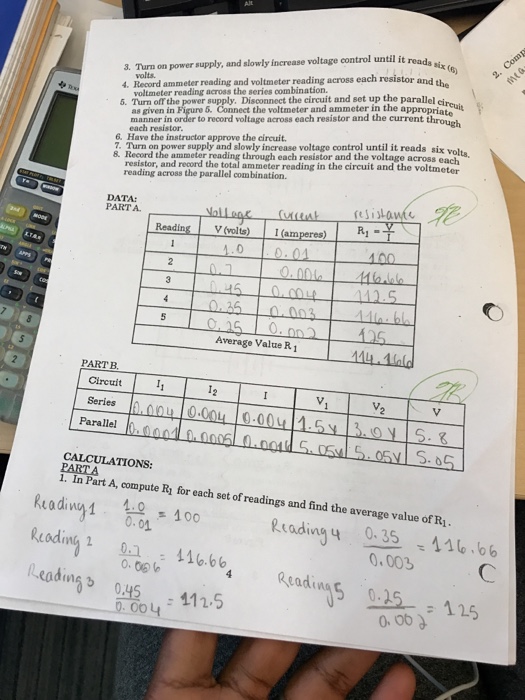 3. Turn on power supply, and slowly increase voltage control until it reads six (6)
volts.
4. Record ammeter reading and voltmeter reading across each resistor and the
voltmeter reading across the series combination.
5. Turn off the power supply. Disconnect the circuit and set up the parallel circuit
as given in Figure 5. Connect the voltmeter and ammeter in the appropriate
manner in order to record voltage across each resistor and the current through
each resistor.
6. Have the instructor approve the circuit.
7. Turn on power supply and slowly increase voltage control until it reads six volts.
8. Record the ammeter reading through each resistor and the voltage across each
resistor, and record the total ammeter reading in the circuit and the voltmeter
reading across the parallel combination.
2. Comp
DATA:
PART A.
Voltage Current resistance
Reading V (volts) I (amperes) R₁ = V/I
1 1.0 0.01 100
2 0.7 0.006 116.66
3 0.45 0.004 112.5
4 0.35 0.003 116.66
5 0.25 0.002 125
Average Value R₁ 114.1666
PART B.
Circuit I₁ I₂ I V₁ V₂ V
Series 0.004 0.004 0.004 1.5v 3.0v 5.8
Parallel 5.05v 5.05v 5.05
CALCULATIONS:
PART A
1. In Part A, compute R₁ for each set of readings and find the average value of R₁.
Reading 1 1.0/0.01 = 100
Reading 2 0.7/0.006 = 116.66
Reading 3 0.45/0.004 = 112.5
4
Reading 4 0.35/0.003 = 116.66
Reading 5 0.25/0.002 = 125
C
WINDOW
MODE
APPS
SIN
7
8
5
2
Alt